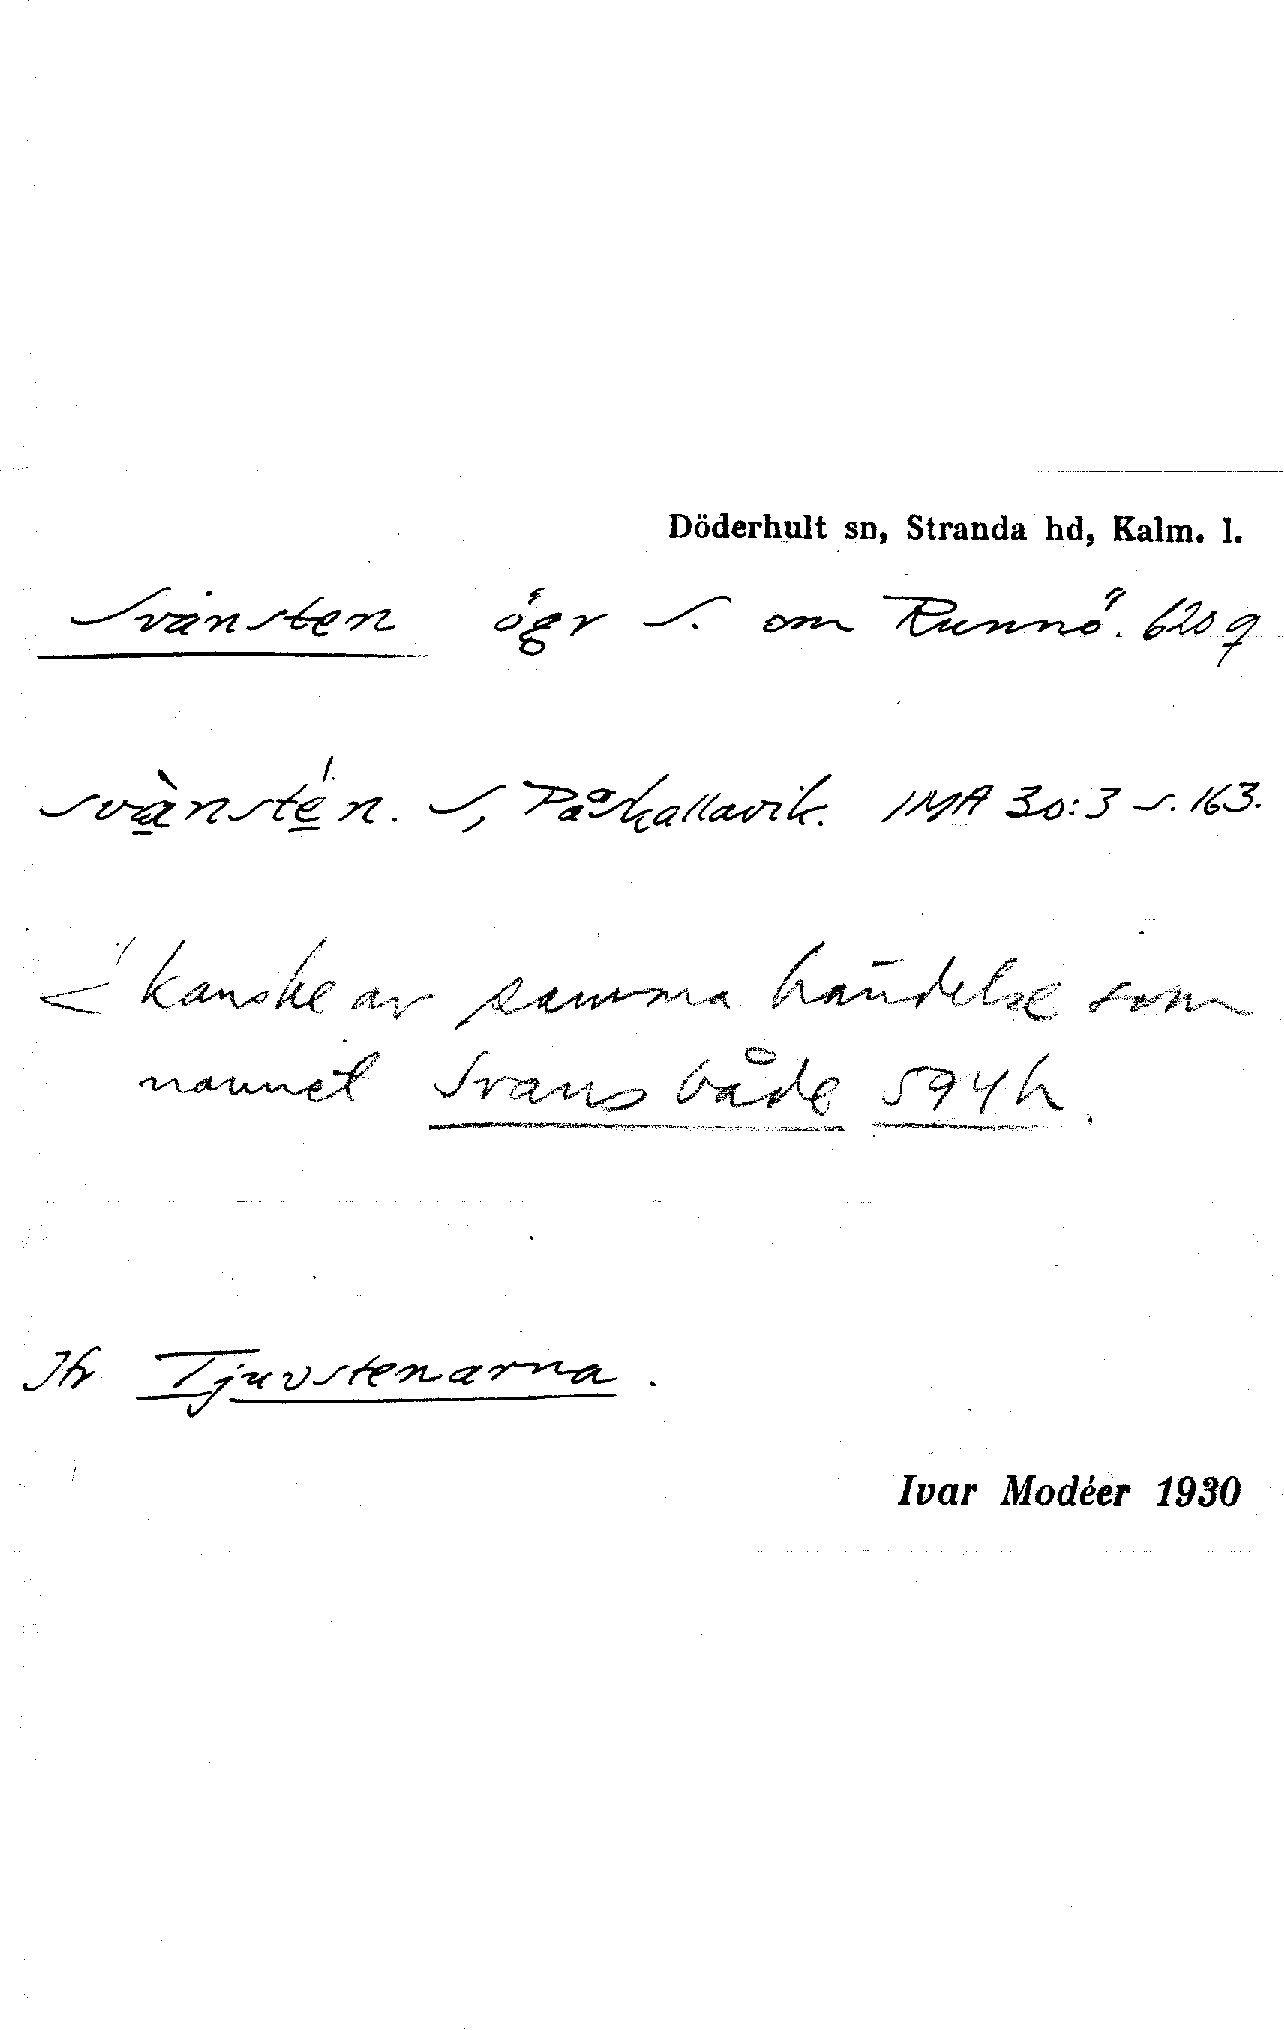 Döderhult sn, Stranda hd, Kalm. l.
Svansten ögr S. om Runnö. 620 q
svä̀nsté̱n. S, Påskallavik. IMA 30:3 s. 163.
< kanske av samma händelse som
namnet Svans både 594 h.
Jfr Tjuvstenarna.
Ivar Modéer 1930